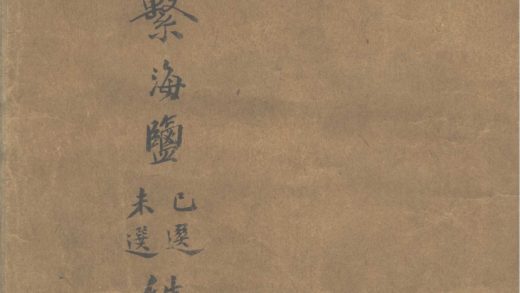 繫海鹽
已選
未選